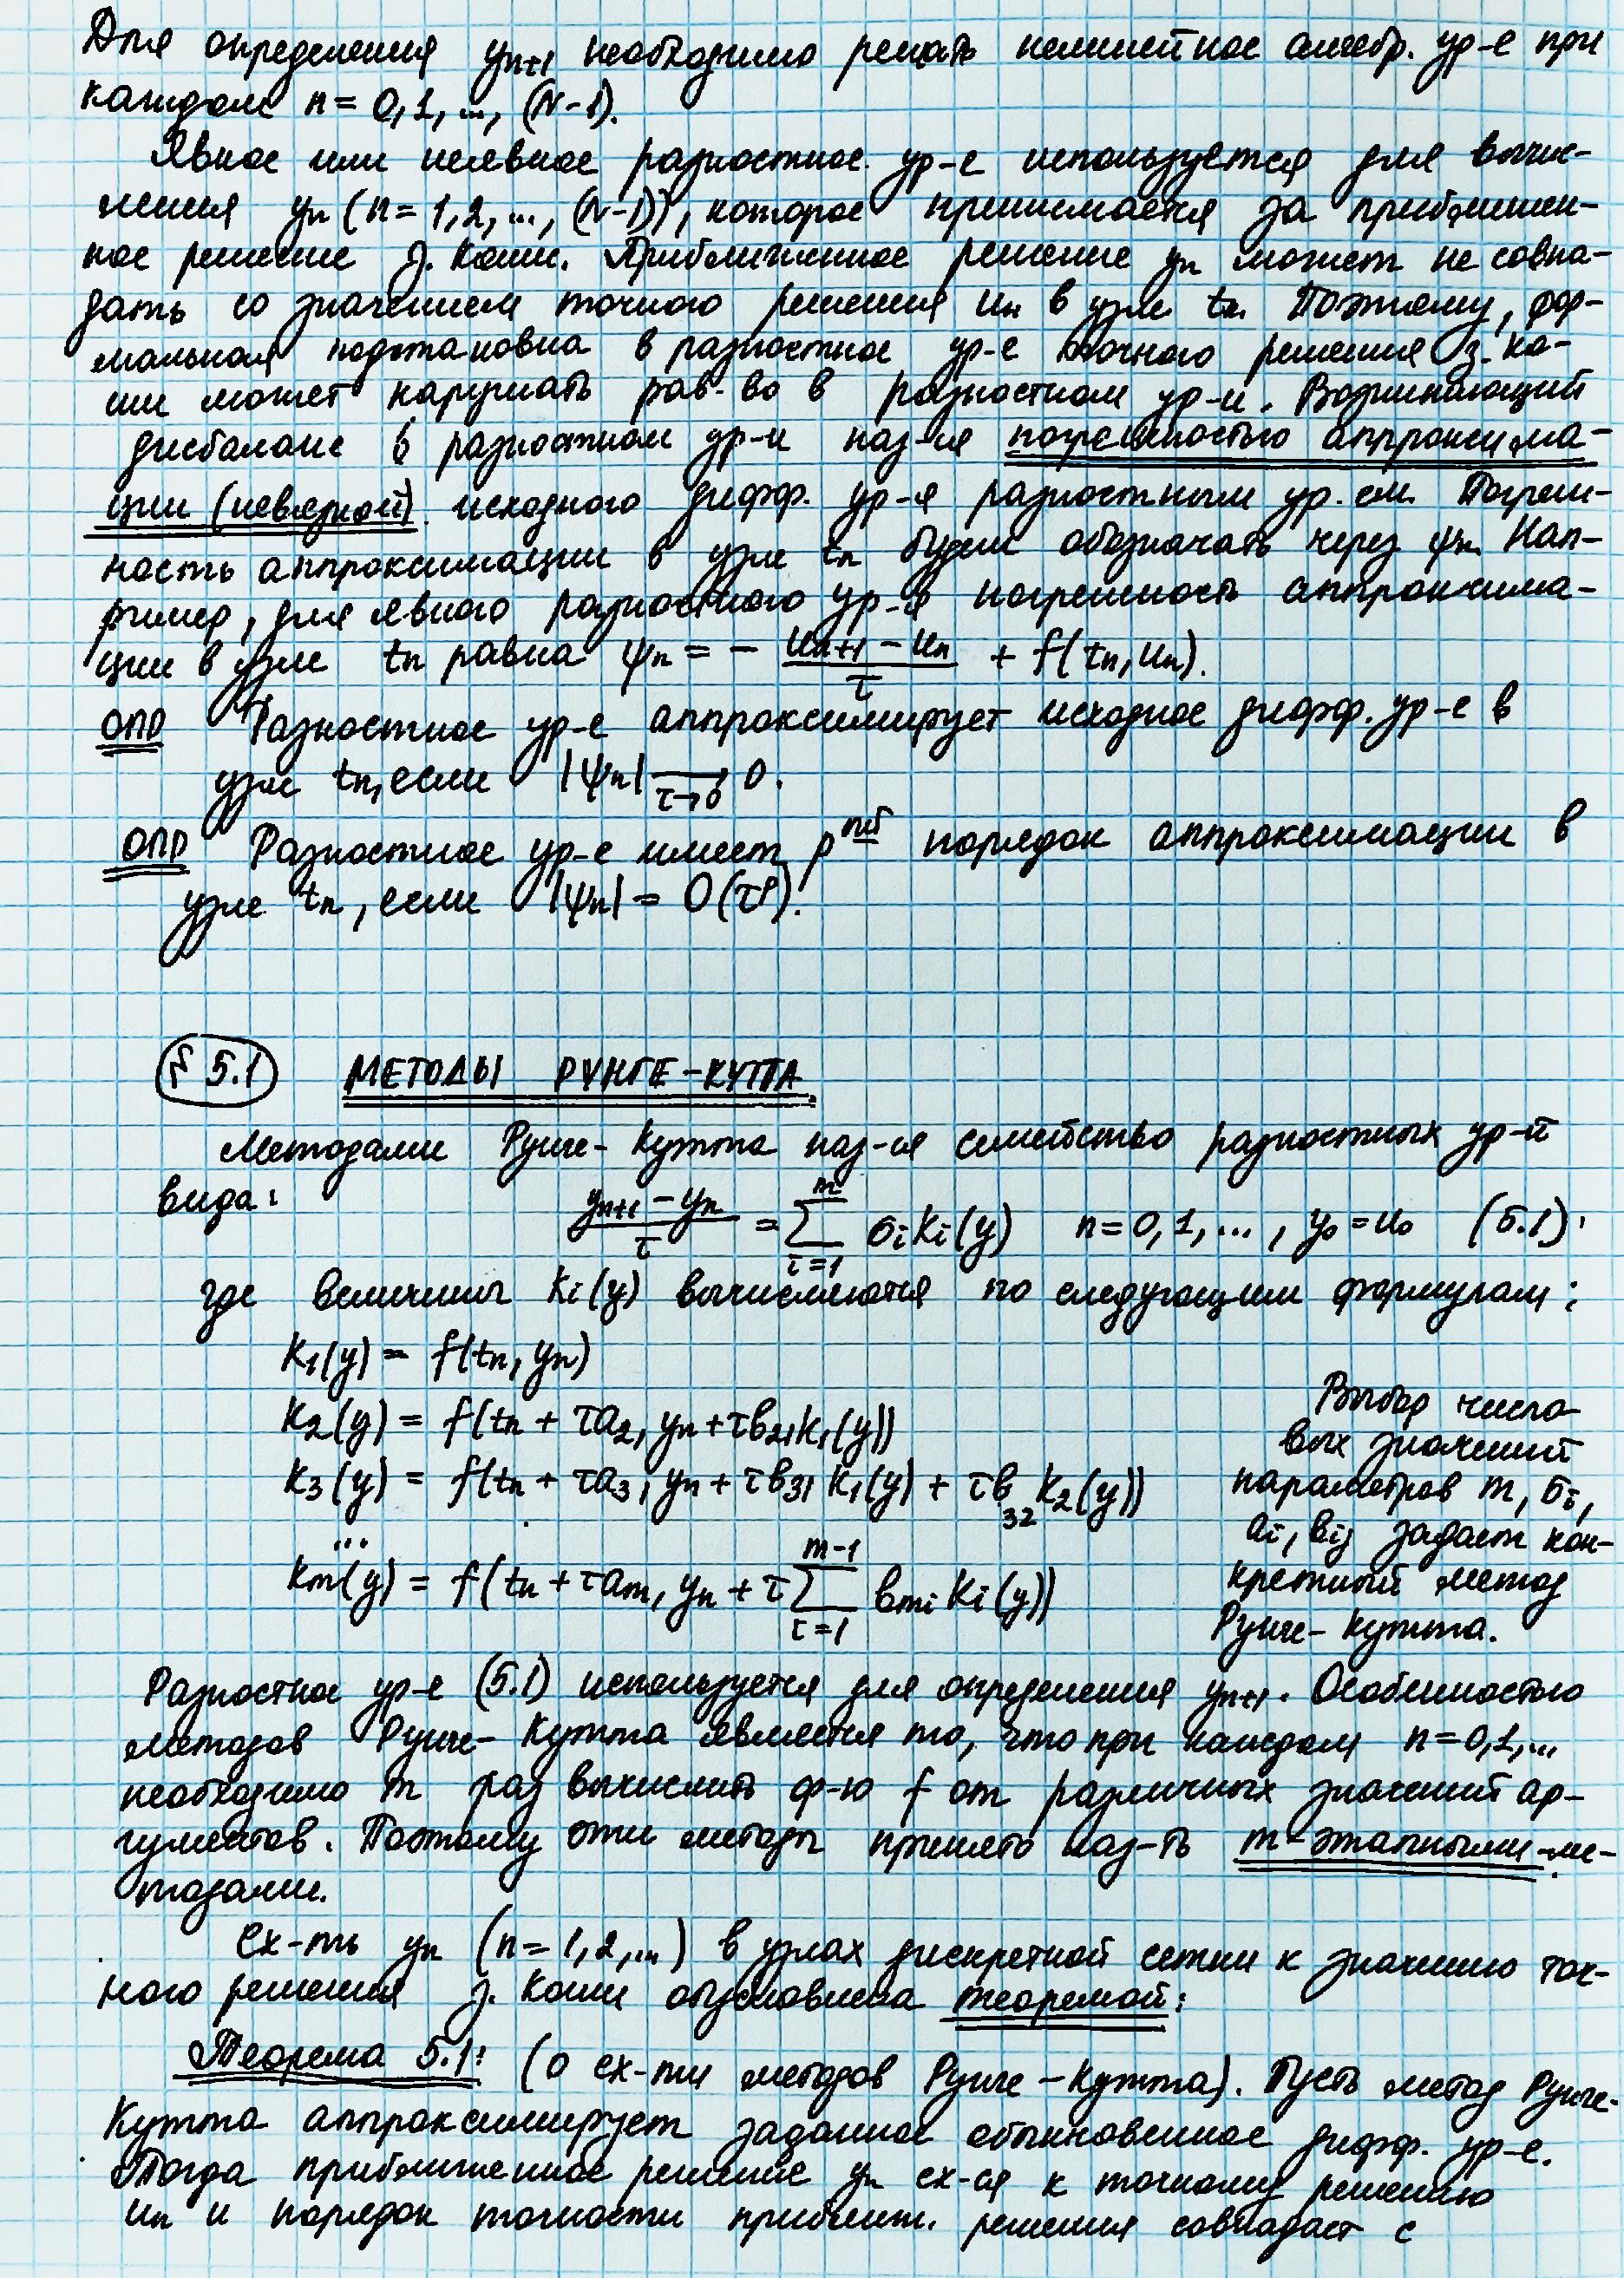 Для определения yₙ₊₁ необходимо решать нелинейное алгебр. ур-е при
каждом n = 0,1,..., (N-1).
Явное или неявное разностное ур-е используется для вычис-
ления yₙ (n = 1,2,..., (N-1)), которое принимается за приближен-
ное решение з. Коши. Приближенное решение yₙ может не совпа-
дать со значением точного решения uₙ в узле tₙ. Поэтому, фор-
мальная подстановка в разностное ур-е точного решения з. Ко-
ши может нарушать рав-во в разностном ур-и. Возникающий
дисбаланс в разностном ур-и наз-ся погрешностью аппроксима-
ции (невязкой) исходного дифф. ур-я разностным ур.-ем. Погреш-
ность аппроксимации в узле tₙ будем обозначать через ψₙ. Нап-
ример, для явного разностного ур-я погрешность аппроксима-
ции в узле tₙ равна ψₙ = - (uₙ₊₁ - uₙ)/τ + f(tₙ, uₙ).
ОПР Разностное ур-е аппроксимирует исходное дифф. ур-е в
узле tₙ, если |ψₙ| →(τ→0) 0.
ОПР Разностное ур-е имеет p^ый порядок аппроксимации в
узле tₙ, если |ψₙ| = O(τᵖ).
§ 5.1 МЕТОДЫ РУНГЕ-КУТТА
Методами Рунге-Кутта наз-ся семейство разностных ур-й
вида: (yₙ₊₁ - yₙ)/τ = ∑_{i=1}^{m} σᵢkᵢ(y) n = 0,1,..., y₀ = u₀ (5.1),
где величины kᵢ(y) вычисляются по следующим формулам:
k₁(y) = f(tₙ, yₙ)
k₂(y) = f(tₙ + τa₂, yₙ + τb₂₁k₁(y))
k₃(y) = f(tₙ + τa₃, yₙ + τb₃₁k₁(y) + τb₃₂k₂(y))
...
kₘ(y) = f(tₙ + τaₘ, yₙ + τ∑_{i=1}^{m-1} bₘᵢkᵢ(y))
Выбор число-
вых значений
параметров m, σᵢ,
aᵢ, bᵢⱼ задает кон-
кретный метод
Рунге-Кутта.
Разностное ур-е (5.1) используется для определения yₙ₊₁. Особенностью
методов Рунге-Кутта является то, что при каждом n = 0,1,...
необходимо m раз вычислить ф-ю f от различных значений ар-
гументов. Поэтому эти методы принято наз-ть m-этапными ме-
тодами.
Сх-ть yₙ (n = 1,2,...) в узлах дискретной сетки к значению точ-
ного решения з. Коши обусловлена теоремой:
Теорема 5.1: (о сх-ти методов Рунге-Кутта). Пусть метод Рунге-
Кутта аппроксимирует заданное обыкновенное дифф. ур-е.
Тогда приближенное решение yₙ сх-ся к точному решению
uₙ и порядок точности приближ. решения совпадает с